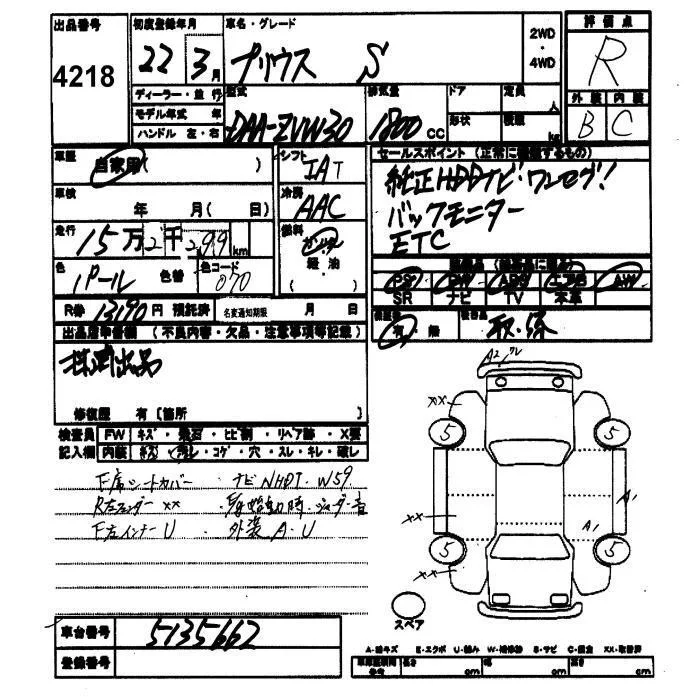 出品番号 初度登録年月 車名・グレード 評価点
4218 22年 3月 プリウス S 2WD・4WD R
ディーラー・並行 型式 排気量 ドア 定員 人 外装 内装
モデル年式 年 DAA-ZVW30 1800cc 形状 積載 kg B C
ハンドル 左・右
車歴 自家用( ) シフト IAT セールスポイント(正常に機能するもの)
車検 年 月( 日) 冷房 AAC 純正HDDナビ!ワンセグ!
走行 15万2千299km 燃料 ガソリン バックモニター
軽・油 ETC
色 パール 色替 色コード 070 ( )
PS PW ABS エアB AW
SR ナビ TV 本革
R券 13190円 預託済 名変通知期限 月 日
有 無 取・保
出品店申告欄 (不良内容・欠品・注意事項等記載)
修復歴 有〔箇所 〕
検査員 FW キズ・飛石・ヒビ割・リペア跡・X要
記入欄 内装 キズ・汚レ・コゲ・穴・スレ・キレ・破レ
F席シートカバー ・ナビNHDT-W59
R左フェンダーxx
F左インナーU ・外装A・U
A2 ワレ
xx
5 5
A1
xx A1
5 5
xx
スペア
車台番号 5135662
登録番号
A-線キズ E-エクボ U-凹み W-補修跡 S-サビ C-腐食 XX-取替済
長さ cm 幅 cm 高さ cm